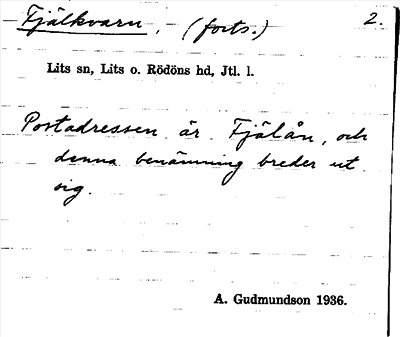 Fjälkvarn, (forts.) 2.
Lits sn, Lits o. Rödöns hd, Jtl. l.
Postadressen är Fjälån, och
denna benämning breder ut
sig.
A. Gudmundson 1936.